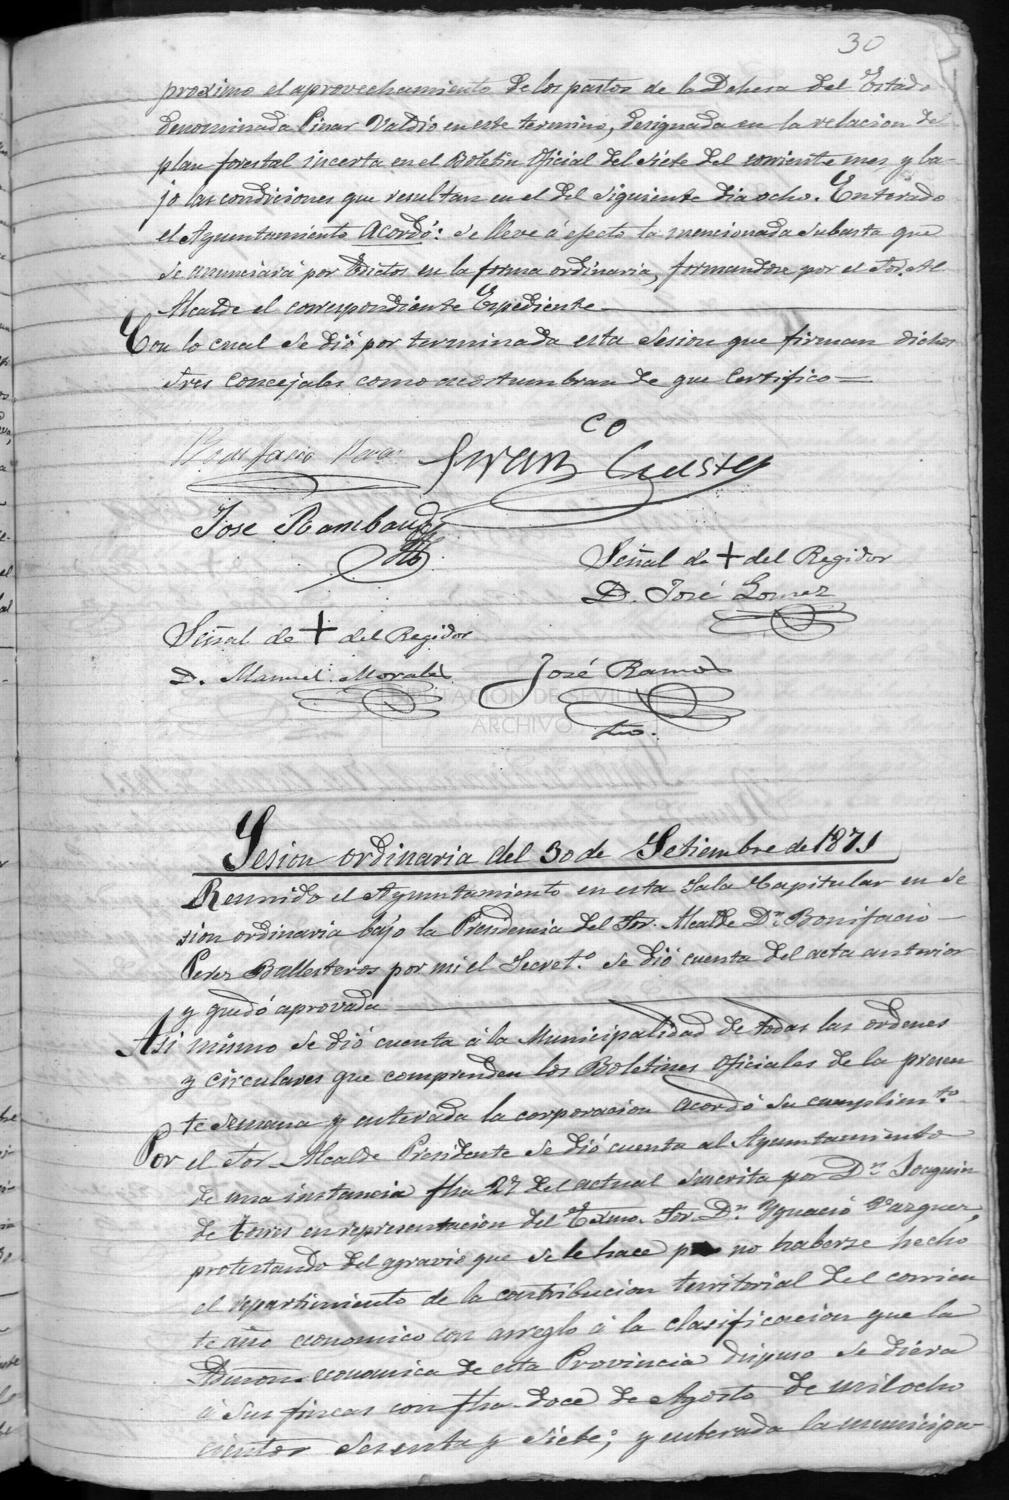 30
proximo el aprovechamiento de los pastos de la Dehesa del Estado
denominada Pinar Valdio en este termino, designada en la relacion del
plan forestal incerta en el Boletin Oficial del siete del corriente mes y ba-
jo las condiciones que resultan en el del siguiente dia ocho. Enterado
el Ayuntamiento Acordó: se lleve á efecto la mencionada subasta que
se anunciará por Edictos en la forma ordinaria, formandose por el Sor. Al
Alcalde el correspondiente Expediente
Con lo cual se dió por terminada esta sesion que firman dichos
Sres Concejales como acostumbran de que Certifico=
Bonifacio Perez
Juan Cº
Jose Rambaud
Señal de + del Regidor
D. José Gomez
Señal de + del Regidor
D. Manuel Morales
José Ramos
Srio.
DIPUTACION DE SEVILLA
ARCHIVO
Sesion ordinaria del 30 de Setiembre de 1871
Reunido el Ayuntamiento en esta Sala Capitular en se
sion ordinaria bajo la Presidencia del Sor. Alcalde Dn. Bonifacio
Perez Ballesteros por mi el Secretº se dió cuenta del acta anterior
y quedó aprovada
Asi mismo se dió cuenta á la Municipalidad de todas las ordenes
y circulares que comprenden los Boletines Oficiales de la presen
te semana y enterada la corporacion acordó su cumplimto.
Por el Sor. Alcalde Presidente se dió cuenta al Ayuntamiento
de una instancia fha 27 del actual suscrita por Dn. Joaquin
de Torres en representacion del Exmo. Sor. Dn. Ygnacio Vazquez,
protestando del agravio que se le hace pr no haberse hecho
el repartimiento de la contribucion territorial del corrien
te año economico con arreglo á la clasificacion que la
Admon. economica de esta Provincia dispuso se diera
á sus fincas con fha doce de Agosto de mil ocho
cientos sesenta y siete; y enterada la municipa-